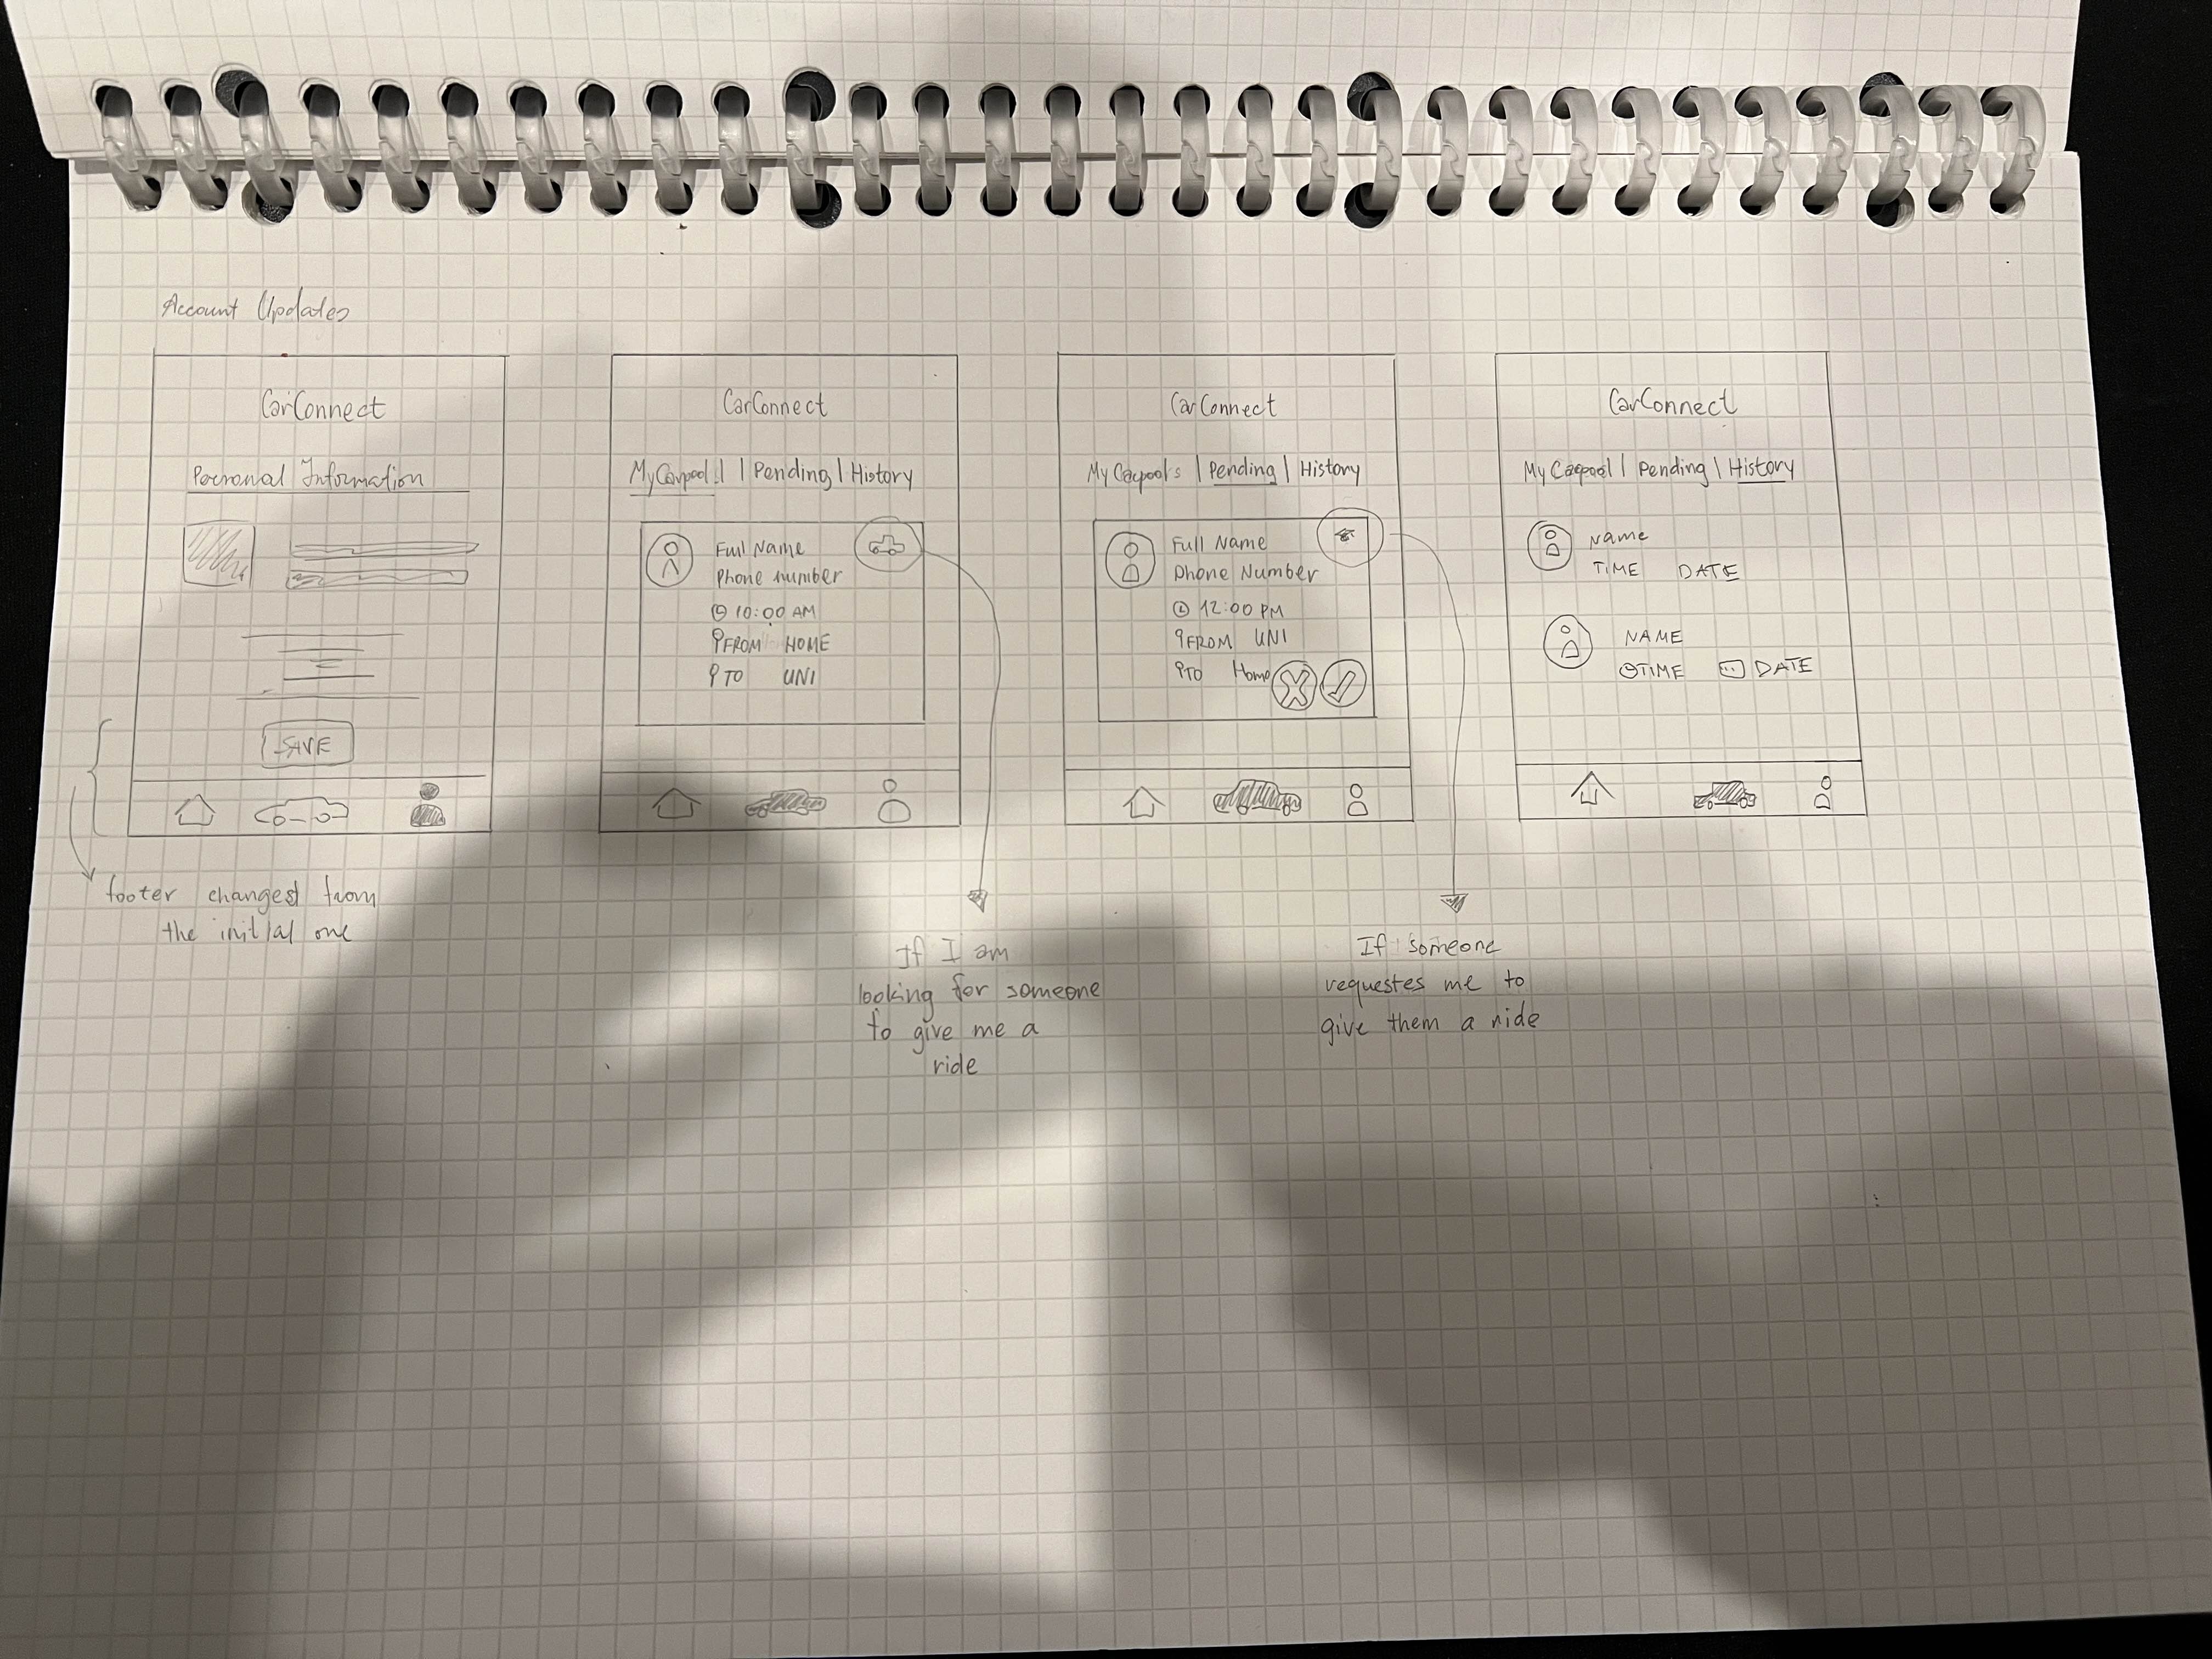 Account Updates
CarConnect
Personal Information
SAVE
footer changest from
the initial one
CarConnect
My Carpool | Pending | History
Full Name
Phone number
10:00 AM
FROM HOME
TO UNI
If I am
looking for someone
to give me a
ride
CarConnect
My Carpools | Pending | History
Full Name
Phone Number
12:00 PM
FROM UNI
TO Home
If someone
requestes me to
give them a ride
CarConnect
My Carpool | Pending | History
Name
TIME DATE
NAME
TIME DATE